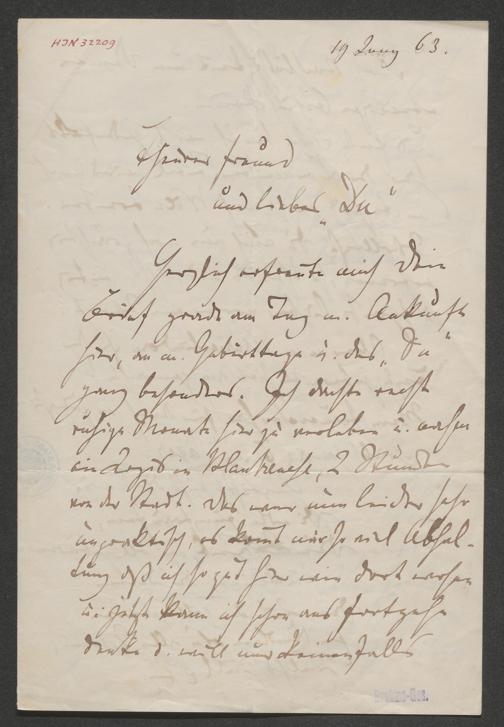 HIN 32209
19 Juny 63.
Theurer Freund
und liebes „Du“
Herzlich erfreute mich Dein
Brief grade am Tag m. Ankunft
hier, an m. Geburtstage u. das „Du“
ganz besonders. Ich dachte recht
ruhige Monate hier zu verleben u. nahm
ein Logis in Blankenese, 2 Stunden
von der Stadt. Das war nun leider sehr
unpraktisch, es kommt mir so viel Abhal-
tung daß ich so gut hier wie dort wohne
u. jetzt kann ich schon ans Fortgehn
denken d. will nur keinenfalls
Brahms-Ges.